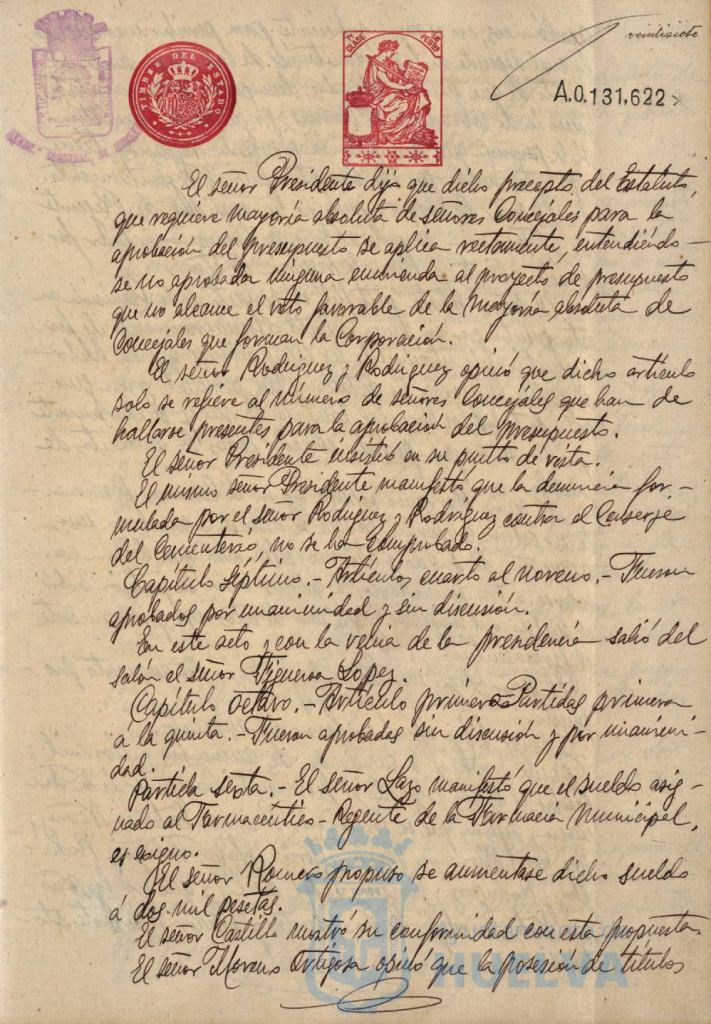 veintisiete
TIMBRE DEL ESTADO
CLASE
A.0.131.622
El señor Presidente dijo que dicho precepto del Estatuto,
que requiere mayoría absoluta de señores Concejales para la
aprobación del presupuesto se aplica rectamente, entendiendo-
se no aprobada ninguna enmienda al proyecto de presupuesto
que no alcance el voto favorable de la mayoría absoluta de
Concejales que forman la Corporación.
El señor Rodriguez y Rodriguez opinó que dicho artículo
solo se refiere al número de señores Concejales que han de
hallarse presentes para la aprobación del presupuesto.
El señor Presidente insistió en su punto de vista.
El mismo señor Presidente manifestó que la denuncia for-
mulada por el señor Rodriguez y Rodriguez contra el Conserje
del Cementerio, no se ha comprobado.
Capítulo séptimo.- Artículos cuarto al noveno.- Fueron
aprobados por unanimidad y sin discusión.
En este acto y con la venia de la presidencia salió del
salón el señor Figueroa Lopez.
Capítulo octavo.- Artículo primero Partidas primera
á la quinta.- Fueron aprobadas sin discusión y por unanimi-
dad.
Partida sexta.- El señor Lazo manifestó que el sueldo asig-
nado al Farmacéutico-Regente de la Farmacia Municipal,
es exiguo.
El señor Romero propuso se aumentase dicho sueldo
á dos mil pesetas.
El señor Castilla mostró su conformidad con esta propuesta.
El señor Moreno Ortigosa opinó que la posesión de títulos
HUELVA